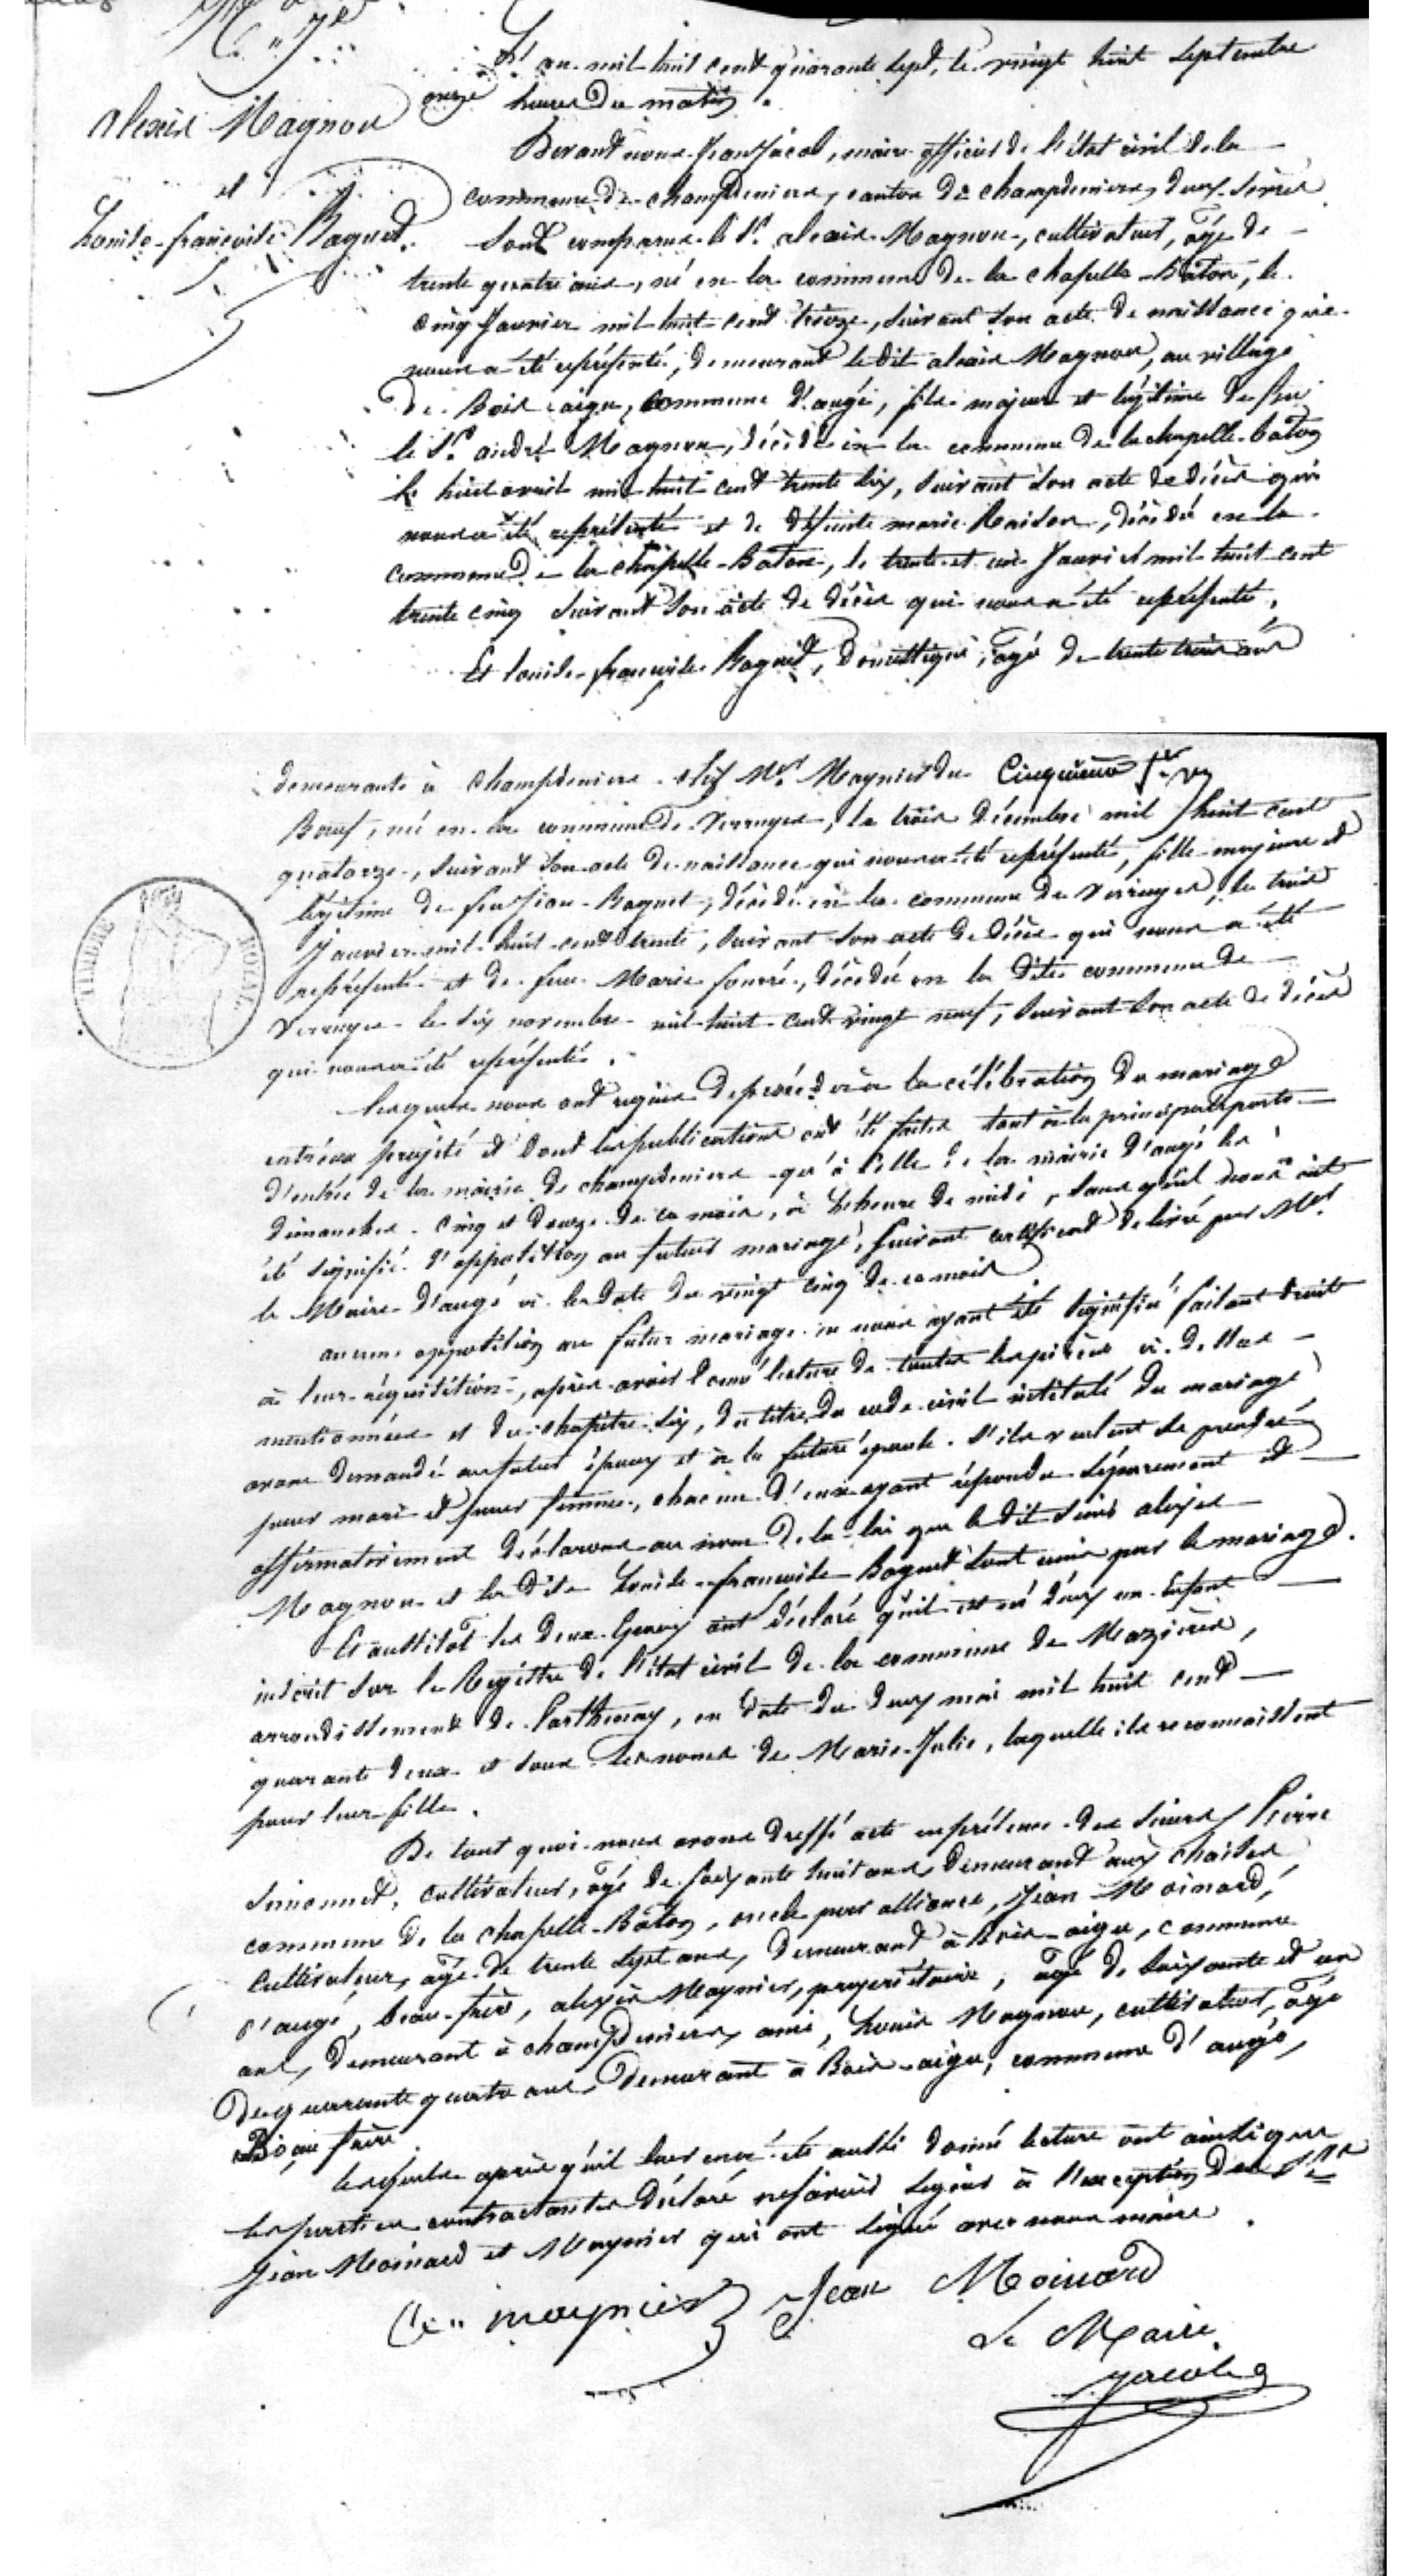 M. 7e
alexis Magnou
et
Louise-françoise Baguet.
L'an mil huit cent quarante sept, le vingt huit septembre
onze heures du matin.
Devant nous Jean Jacob, maire officier de l'état civil de la
commune de champdeniers, canton de champdeniers, deux-sèvres
sont comparus le Sr. alexis Magnou, cultivateur, âgé de
trente quatre ans, né en la commune de la chapelle-Bâton, le
cinq Janvier mil huit cent treize, suivant son acte de naissance qui
nous a été représenté, demeurant le dit alexis Magnou, au village
de Bois-aigu, commune d'augé, fils majeur et légitime de feu
le Sr. andré Magnou, décédé en la commune de la chapelle-baton
le huit avril mil huit cent trente six, suivant son acte de décès qui
nous a été représenté et de défunte marie Raison, décédée en la
commune de la chapelle-Baton, le trente et un Janvier mil huit cent
trente cinq suivant son acte de décès qui nous a été représenté.
Et louise-françoise Baguet, domestique, âgée de trente trois ans
demeurante à champdeniers chez Mr. Maynier du Cinquième
Bœuf, née en la commune de Verruyes, le trois décembre mil huit cent
quatorze, suivant son acte de naissance qui nous a été représenté, fille majeure et
légitime de feu Jean Baguet, décédé en la commune de Verruyes, le trois
Janvier mil huit cent trente, suivant son acte de décès qui nous a été
représenté et de feue Marie fouré, décédée en la dite commune de
Verruyes le six novembre mil huit cent vingt neuf, suivant son acte de décès
qui nous a été représenté.
Lesquels nous ont requis de procéder à la célébration du mariage
entr'eux projeté et dont les publications ont été faites tant à la principale porte
d'entrée de la mairie de champdeniers qu'à celle de la mairie d'augé les
dimanches cinq et douze de ce mois, à l'heure de midi, sans qu'il nous ait
été signifié d'opposition au futur mariage, suivant certificat délivré par Mr.
le Maire d'augé à la date du vingt cinq de ce mois
aucune opposition au futur mariage ne nous ayant été signifié faisant droit
à leur réquisition, après avoir donné lecture de toutes les pièces ci-dessus
mentionnées et du chapitre six, du titre du code civil intitulé du mariage
avons demandé au futur époux et à la future épouse s'ils veulent se prendre
pour mari et pour femme, chacun d'eux ayant répondu séparément et
affirmativement déclarons au nom de la loi que le dit sieur alexis
Magnou et la dite Louise-françoise Baguet sont unis par le mariage.
Et aussitôt les deux Epoux ont déclaré qu'il est né d'eux un Enfant
inscrit sur le Registre de l'état civil de la commune de Mazières,
arrondissement de Parthenay, en date du deux mai mil huit cent
quarante deux et sous les noms de Marie-Julie, laquelle ils reconnaissent
pour leur fille.
De tout quoi nous avons dressé acte en présence des sieurs Pierre
Simonnet, cultivateur, âgé de soixante huit ans, demeurant aux chaises
commune de la chapelle-Bâton, oncle par alliance, Jean Moinard,
cultivateur, âgé de trente sept ans, demeurant à Bois-aigu, commune
d'augé, beau-frère, alexis Maynier, propriétaire, âgé de soixante et un
ans, demeurant à champdeniers, ami, Louis Magnou, cultivateur, âgé
de quarante quatre ans, demeurant à Bois-aigu, commune d'augé,
Beau frère.
Lesquels après qu'il leur en a été aussi donné lecture ont ainsi que
les parties contractantes déclaré ne savoir signer à l'exception des Srs
Jean Moinard et Maynier qui ont signé avec nous maire.
maynier Jean Moinard
Le Maire
Jacob
TIMBRE ROYAL